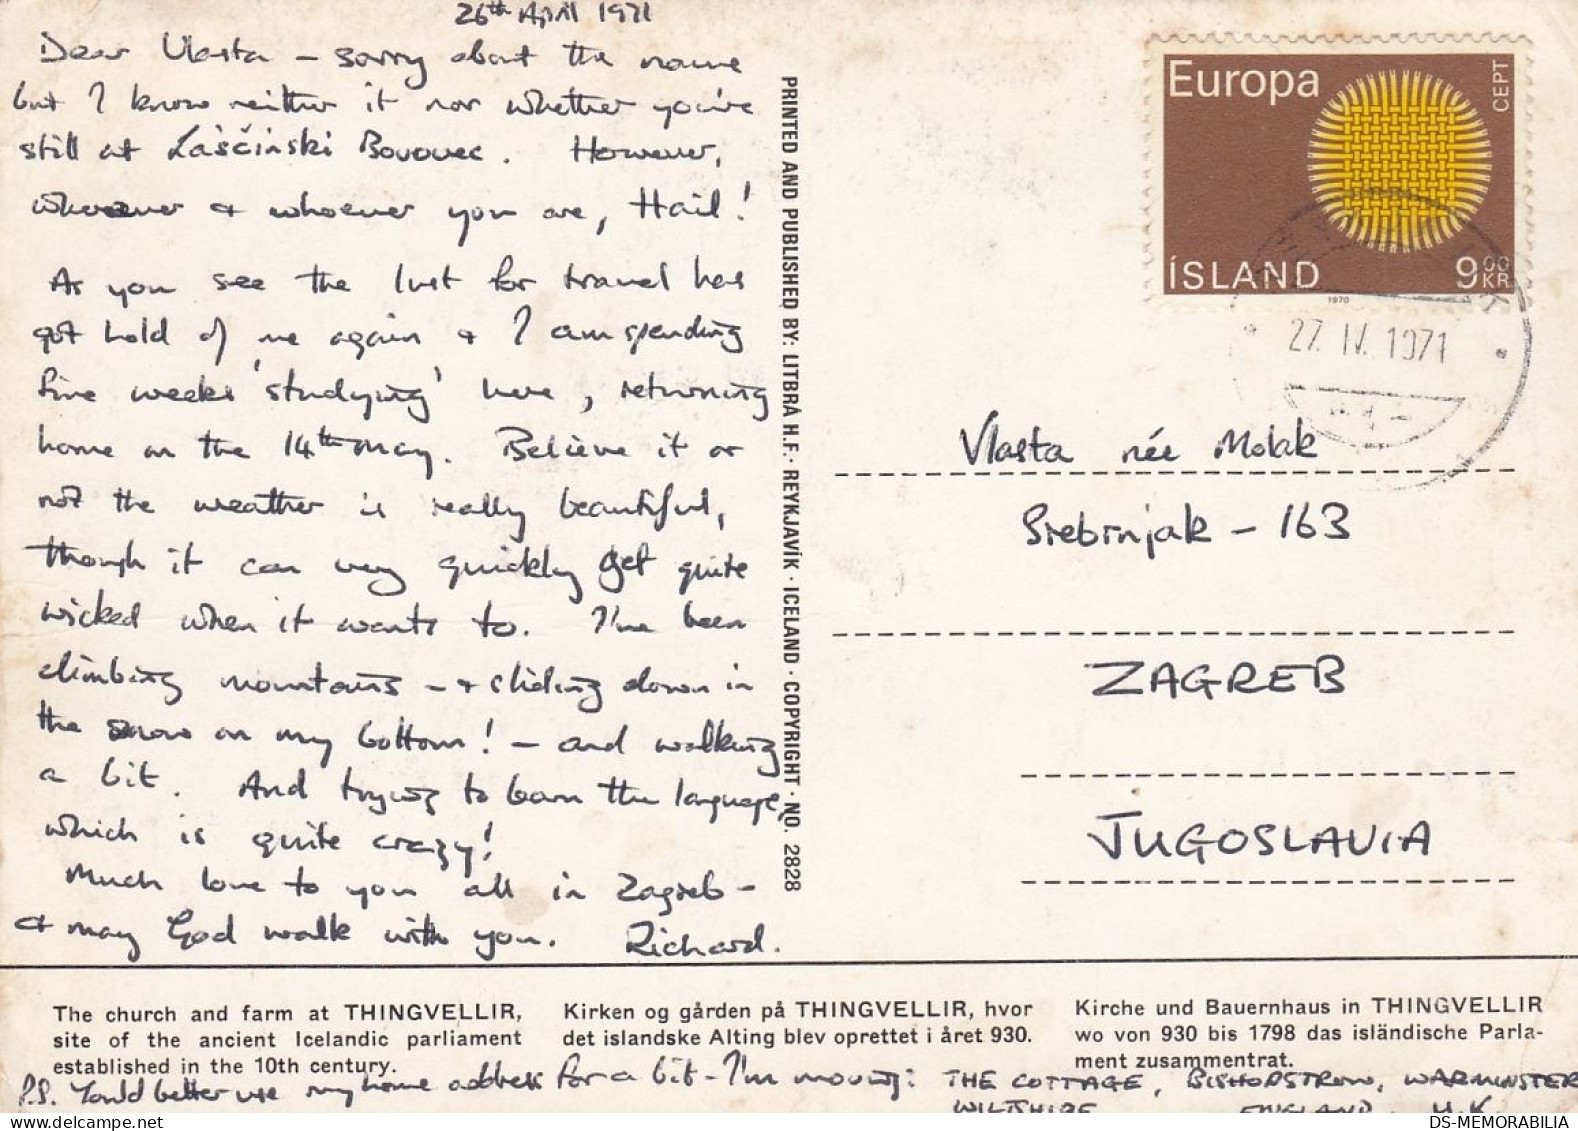 26th April 1971
Dear Vlasta – sorry about the name
but I know neither it nor whether you're
still at Laščinski Borovec. However,
wherever & whoever you are, Hail!
As you see the lust for travel has
got hold of me again & I am spending
five weeks 'studying' here, returning
home on the 14th May. Believe it or
not the weather is really beautiful,
though it can very quickly get quite
wicked when it wants to. I've been
climbing mountains – & sliding down in
the snow on my bottom! – and walking
a bit. And trying to learn the language,
which is quite crazy!
Much love to you all in Zagreb –
& may God walk with you. Richard.
PRINTED AND PUBLISHED BY: LITBRÁ H.F. · REYKJAVÍK · ICELAND · COPYRIGHT · NO. 2828
Europa
CEPT
ÍSLAND
9 00 KR
1970
27. IV. 1971
Vlasta née Molak
Srebrnjak – 163
ZAGREB
JUGOSLAVIA
The church and farm at THINGVELLIR,
site of the ancient Icelandic parliament
established in the 10th century.
Kirken og gården på THINGVELLIR, hvor
det islandske Alting blev oprettet i året 930.
Kirche und Bauernhaus in THINGVELLIR
wo von 930 bis 1798 das isländische Parla-
ment zusammentrat.
P.S. You'd better use my home address for a bit – I'm moving: THE COTTAGE, BISHOPSTROW, WARMINSTER
WILTSHIRE ENGLAND, U.K.
DS-MEMORABILIA